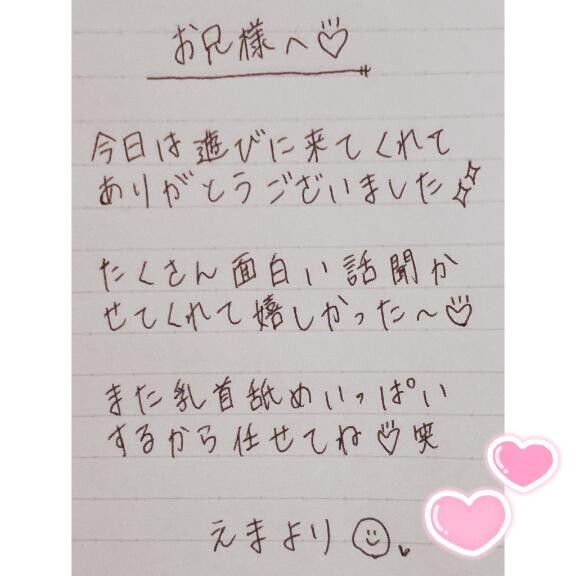 お兄様へ♡
今日は遊びに来てくれて
ありがとうございました✨
たくさん面白い話聞か
せてくれて嬉しかった〜♡
また乳首舐めいっぱい
するから任せてね♡笑
えまより☺